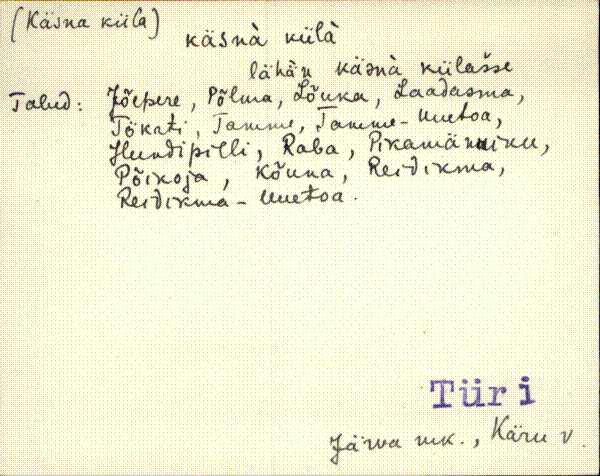 (Käsna küla)
käsnà külà
lähän käsnà külàsse
Talud: Jõepere, Põlma, Lõuka, Laadasma,
Tökati, Tamme, Tamme-Uuetoa,
Hundipilli, Raba, Pikamänniku,
Põikoja, Kõuna, Reidikma,
Reidikma-Uuetoa.
Türi
Järva mk., Käru v.